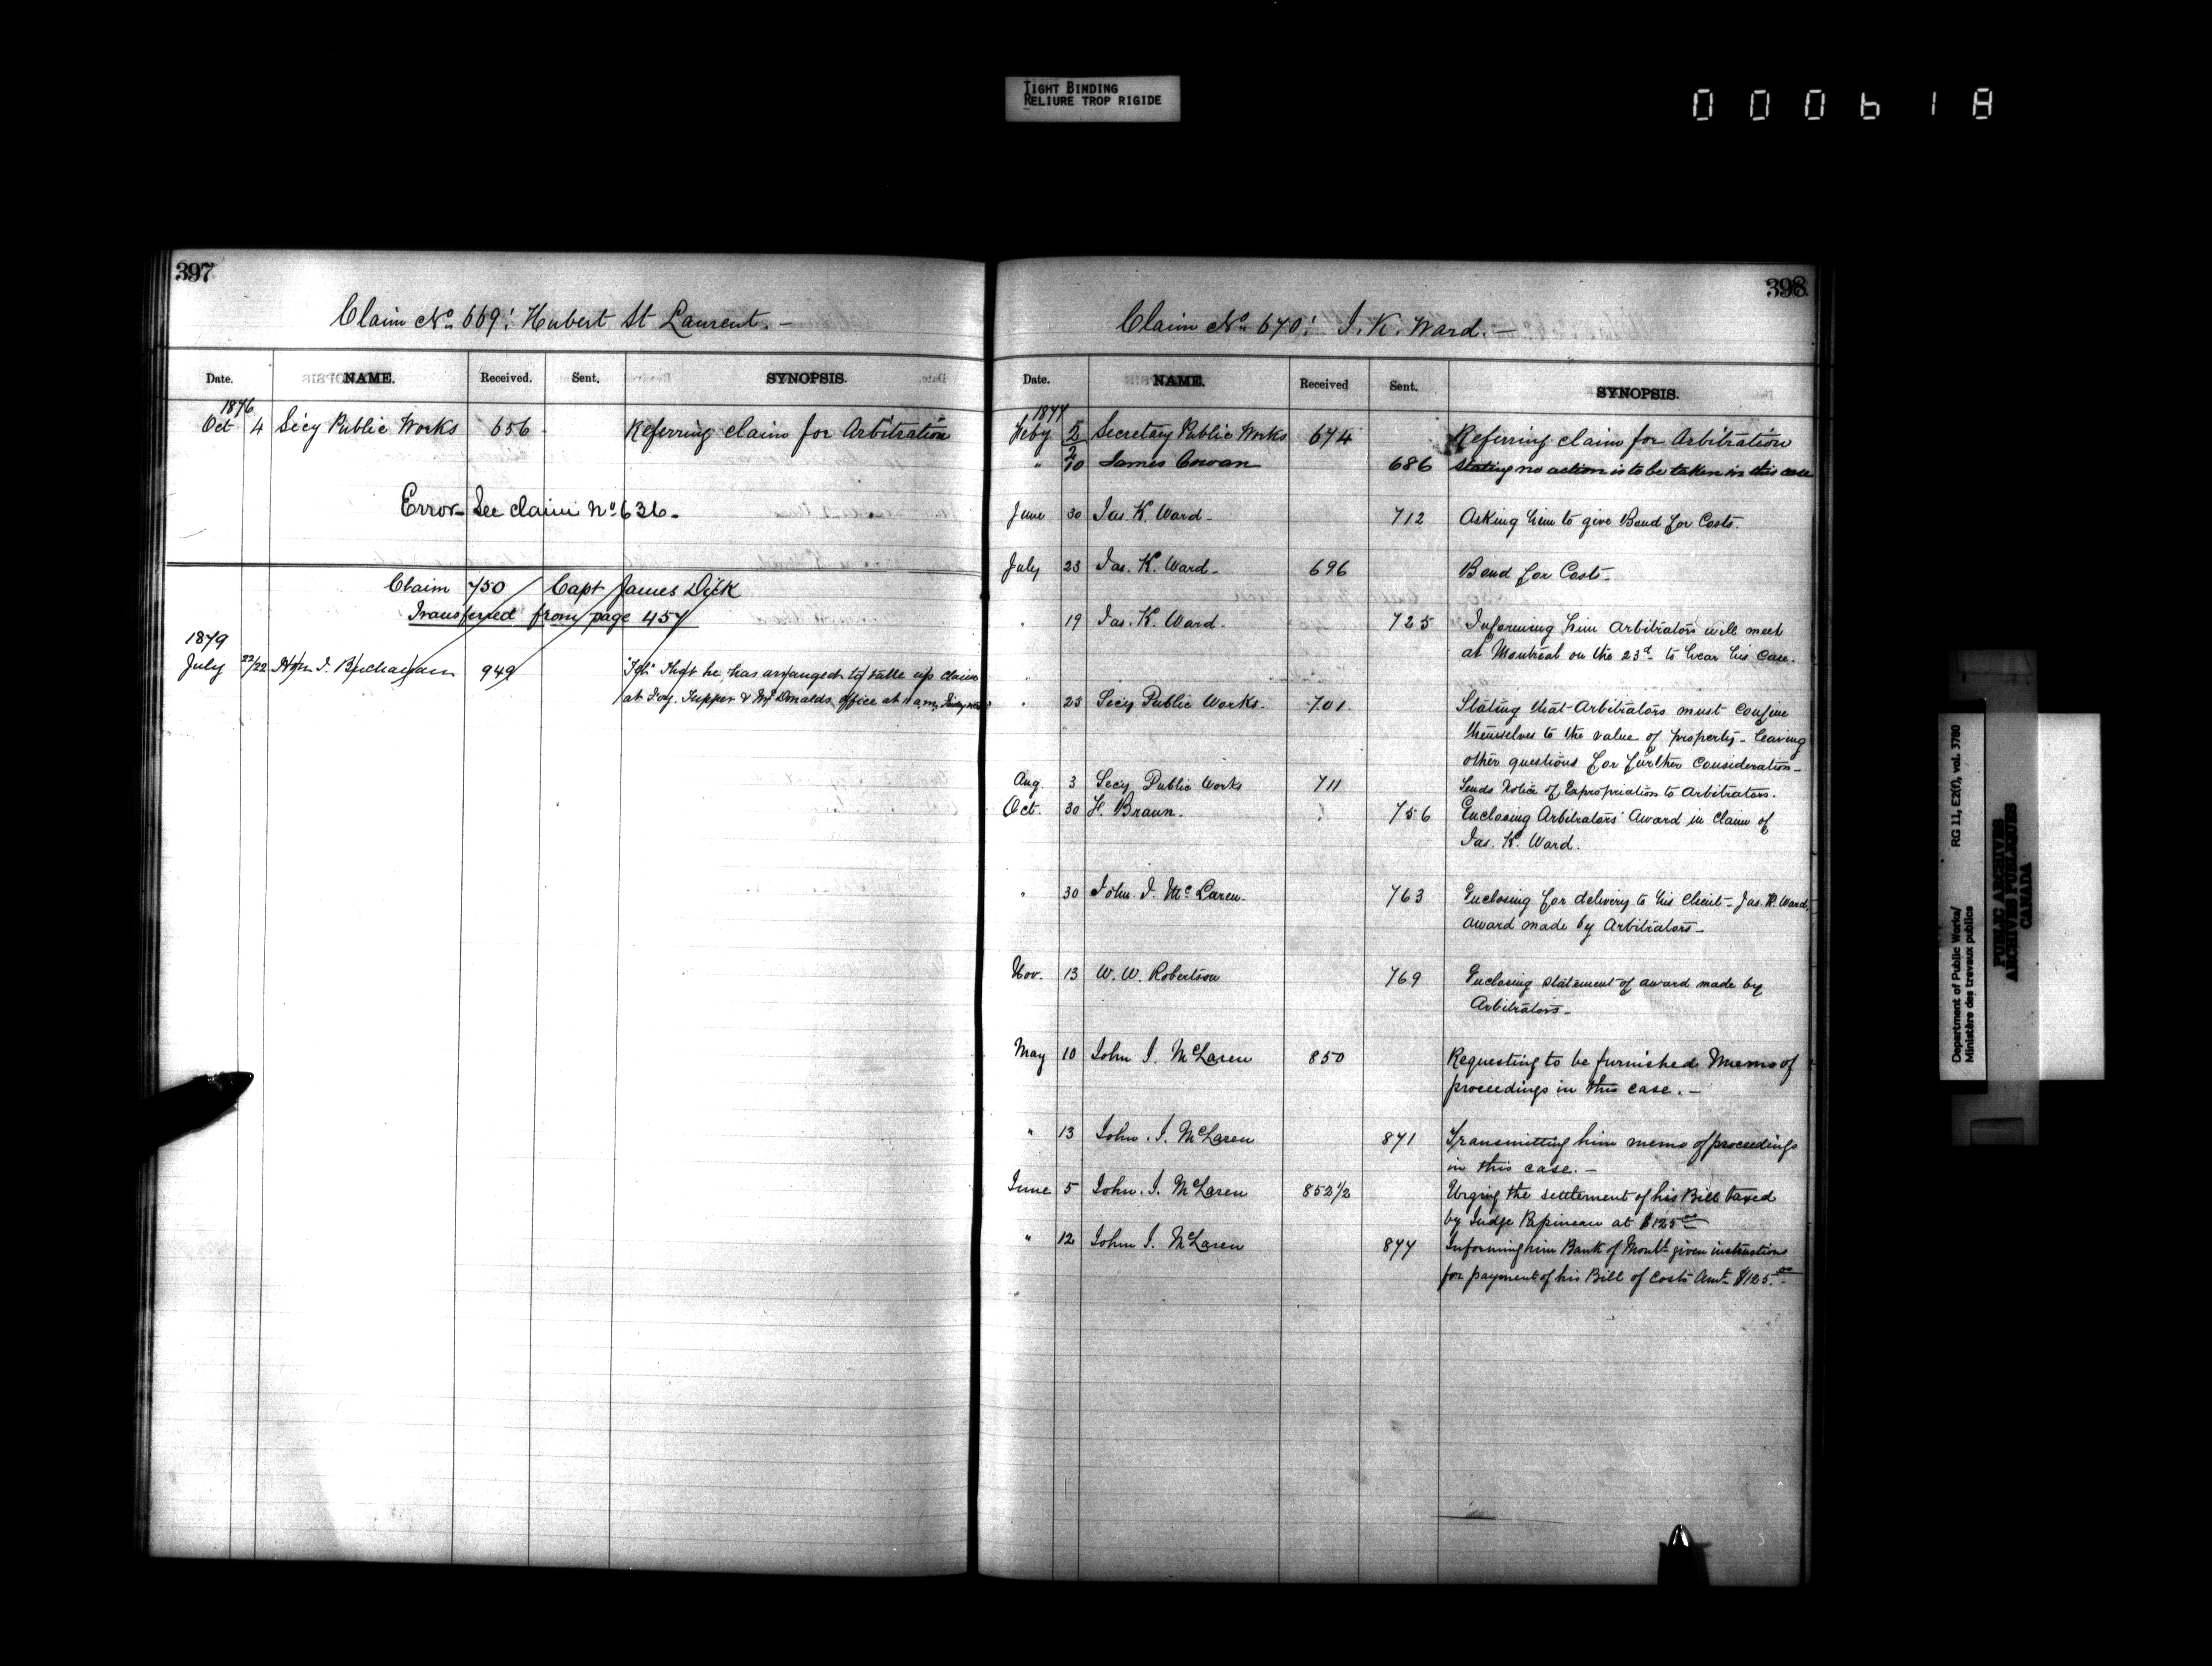 TIGHT BINDING
RELIURE TROP RIGIDE
000618
397
Claim No. 669: Hubert St Laurent. -
Date. NAME. Received. Sent. SYNOPSIS.
1876
Oct 4 Secy Public Works 656 Referring claim for Arbitration
Error - See claim No 636 -
Claim 750 Capt James Dick
Transferred from page 457
1879
July 22/22 Hon I. Buchanan 949 That he has arranged to take up claim
at Foy, Tupper & McDonalds office at 11 a.m.
398
Claim No. 670: J. K. Ward. -
Date. NAME. Received Sent. SYNOPSIS.
1877
Feby 2/2 Secretary Public Works 674 Referring claim for Arbitration
" 10 James Cowan 686 Stating no action is to be taken in this case
June 30 Jas. K. Ward - 712 Asking him to give Bond for Costs.
July 23 Jas. K. Ward - 696 Bond for Costs -
" 19 Jas. K. Ward. 725 Informing him Arbitrators will meet
at Montreal on the 23d to hear his case.
" 23 Secy Public Works. 701 Stating that Arbitrators must confine
themselves to the value of property - leaving
other questions for further consideration -
Aug. 3 Secy Public Works 711 Sends Notice of Expropriation to Arbitrators.
Oct. 30 F. Braun. 756 Enclosing Arbitrators' Award in claim of
Jas. K. Ward.
" 30 John J. McLaren. 763 Enclosing for delivery to his Client - Jas. K. Ward,
award made by Arbitrators -
Nov. 13 W. W. Robertson 769 Enclosing statement of award made by
Arbitrators -
May 10 John J. McLaren 850 Requesting to be furnished Memo of
proceedings in this case. -
" 13 John. J. McLaren 871 Transmitting him memo of proceedings
in this case. -
June 5 John. J. McLaren 852 1/2 Urging the settlement of his Bill taxed
by Judge Papineau at $125 00
" 12 John J. McLaren 877 Informing him Bank of Montl given instructions
for payment of his Bill of Costs Amt $125.00
Department of Public Works/ RG 11, E2(f), vol. 3780
Ministère des travaux publics
PUBLIC ARCHIVES
ARCHIVES PUBLIQUES
CANADA